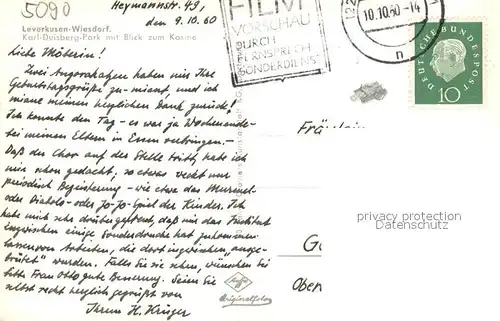 5090
Heymannstr. 49,
den 9.10.60
Leverkusen-Wiesdorf.
Karl-Duisberg-Park mit Blick zum Kasino
FILM
VORSCHAU
DURCH
FERNSPRECH
SONDERDIENST
10.10.60-14
n
DEUTSCHE BUNDESPOST
10
Liebe Möberin!
Zwei Angorahasen haben mir Ihre
Geburtstagsgrüße zu-miaut, und ich
miaue meinen herzlichen Dank zurück!
Ich konnte den Tag - es war ja Wochenende -
bei meinen Eltern in Essen verbringen. -
Daß der Chor auf der Stelle tritt, habe ich
mir schon gedacht; so etwas weckt nur
periodisch Begeisterung - wie etwa das Murmel-
oder Diabolo- oder Jo-Jo-Spiel der Kinder. Ich
habe mich sehr drüber gefreut, daß mir das Institut
inzwischen einige Sonderdrucke hat zukommen
lassen von Arbeiten, die dort inzwischen "ausge-
brütet" wurden. Falls Sie sie sehen, wünschen Sie
bitte Frau Otto gute Besserung. Seien Sie
selbst recht herzlich gegrüßt von
Ihrem H. Krüger
Fräulein
G
Ober
Agfa
Originalfoto
privacy protection
Datenschutz